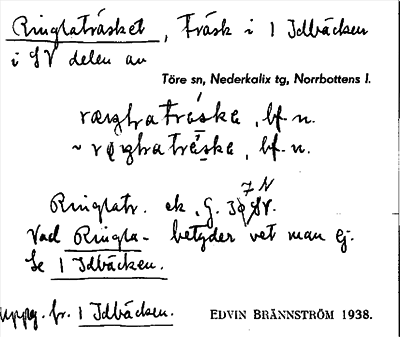 Ringlaträsket, träsk i 1 Idbäcken
i SV delen av
Töre sn, Nederkalix tg, Norrbottens l.
bf. n.
~ bf. n.
Ringlatr. ek. G. 7 N
Vad Ringla- betyder vet man ej.
Se 1 Idbäcken.
uppg. fr. 1 Idbäcken. EDVIN BRÄNNSTRÖM 1938.